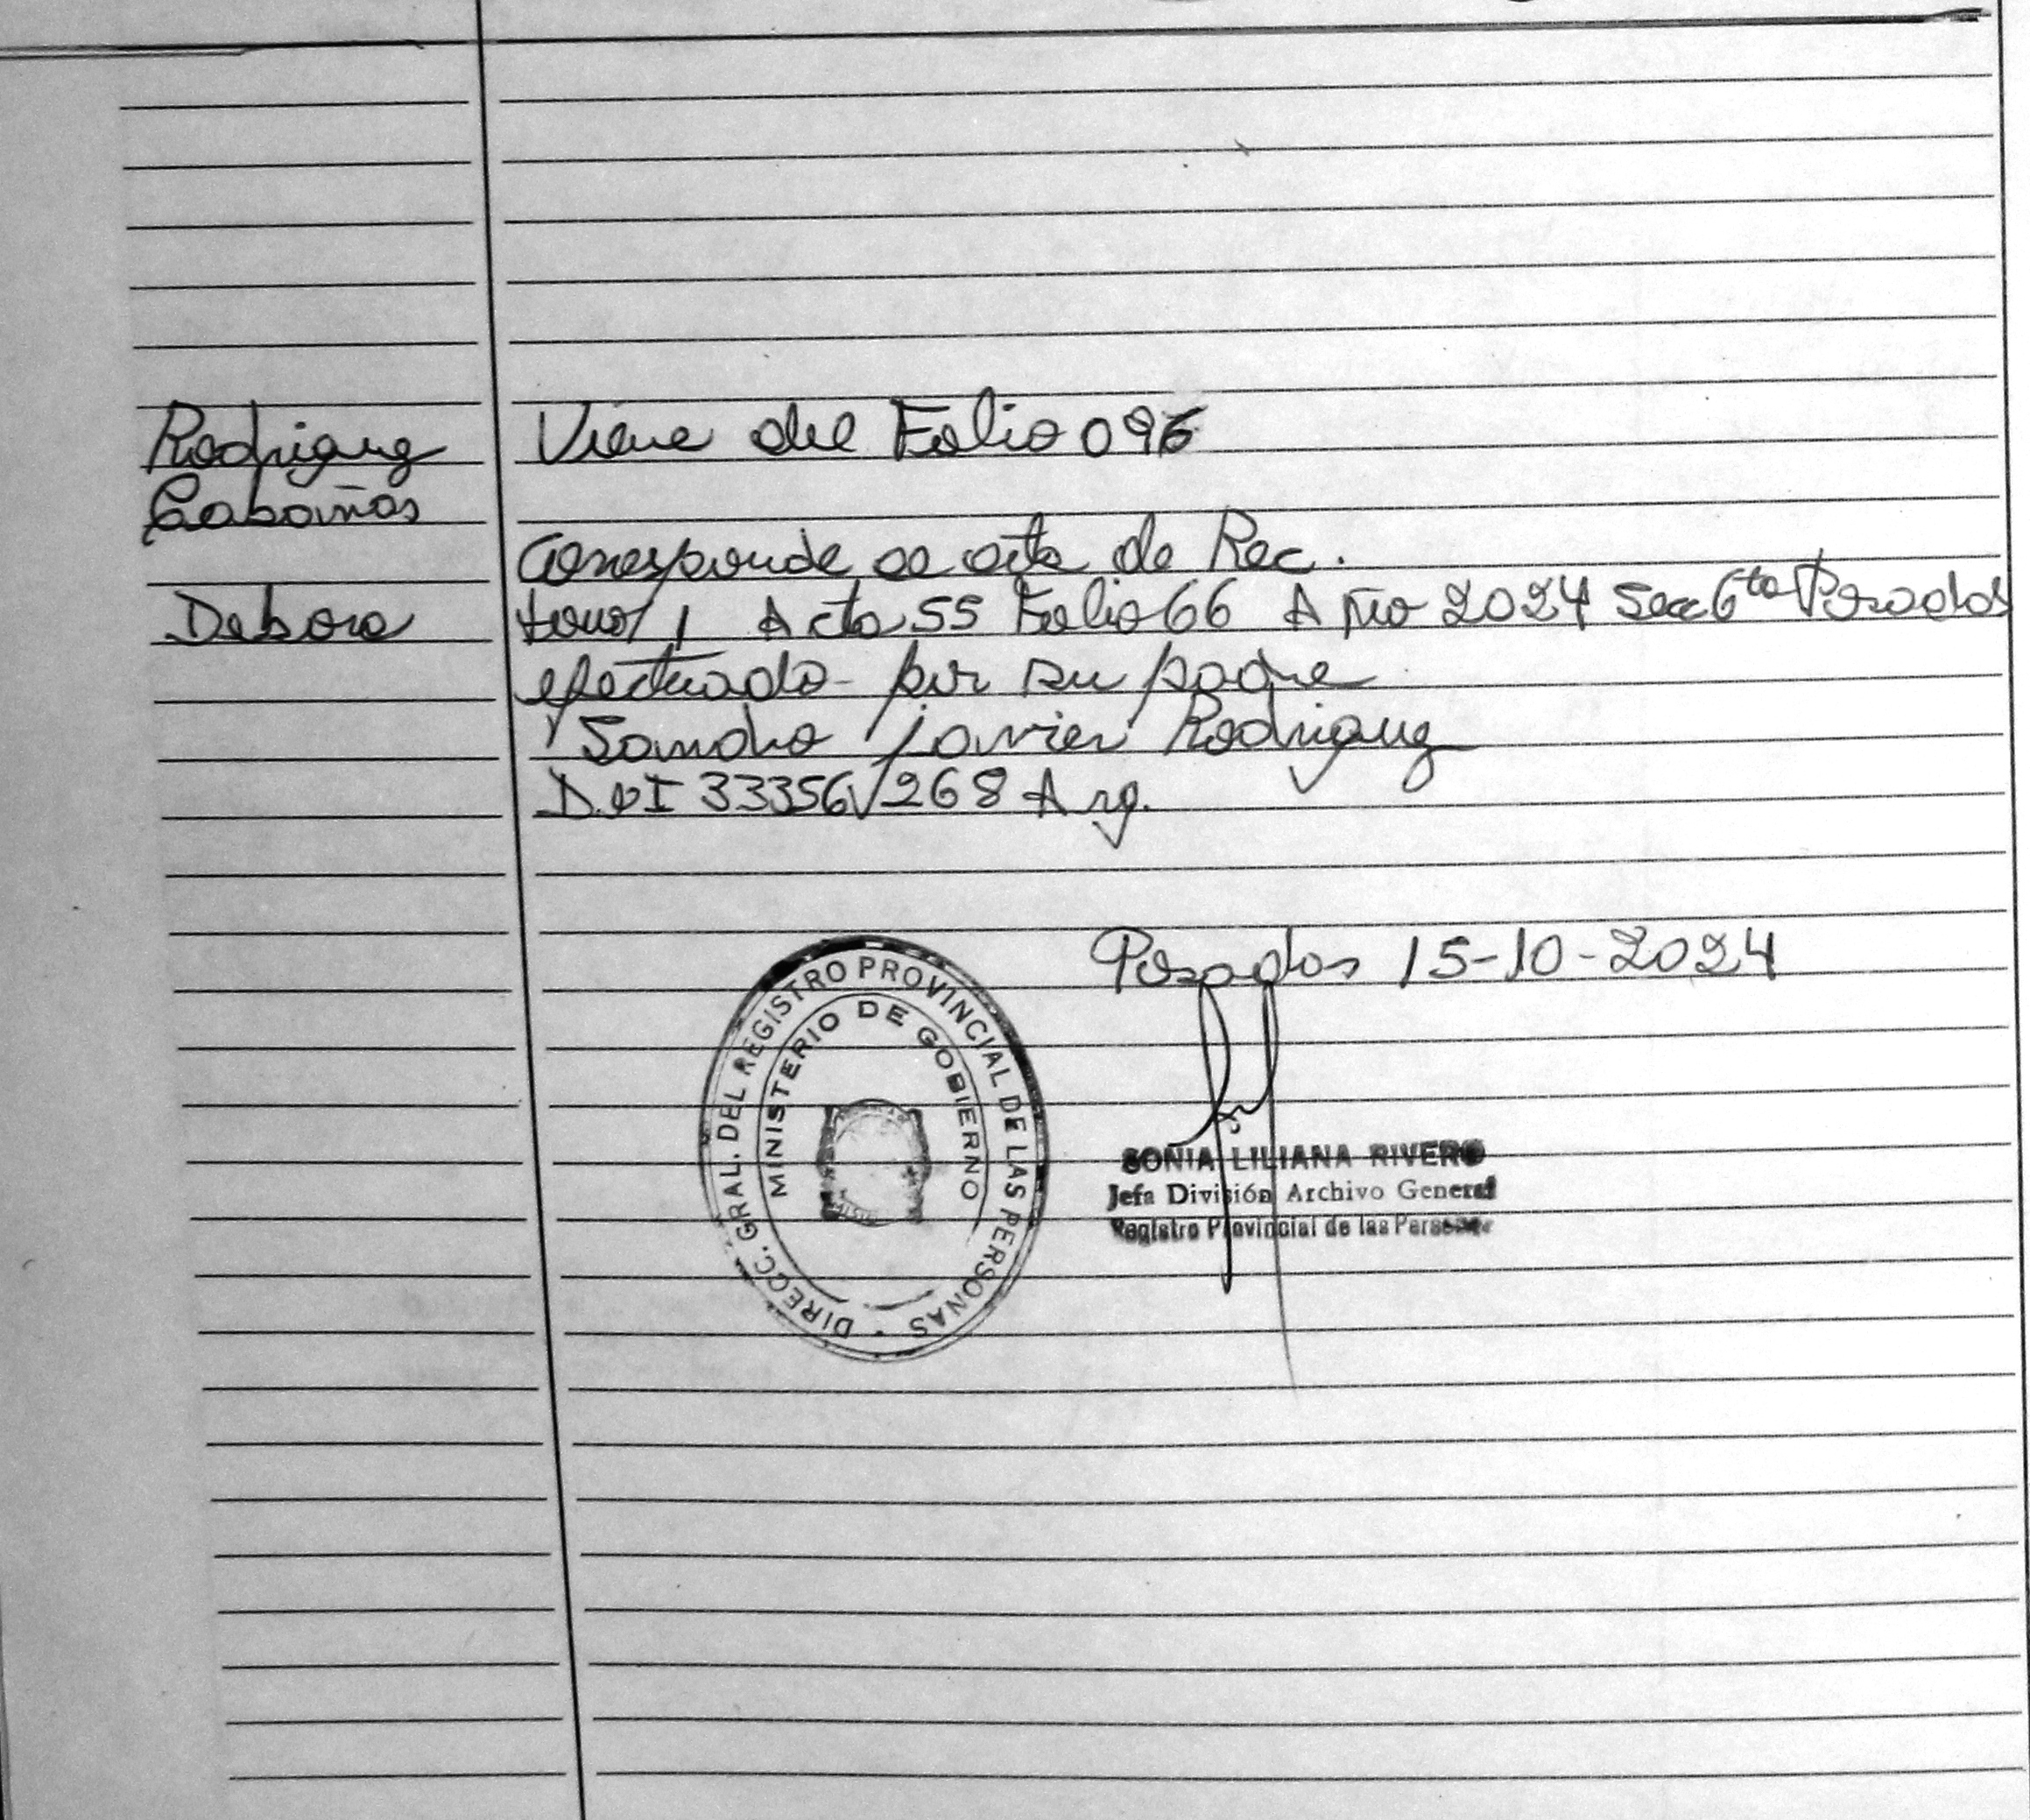 Rodriguez Viene del Folio 096
Cabañas
Corresponde a acta de Rec.
Debora tomo 1 Acta 55 Folio 66 Año 2024 Sec 6ta Posadas
efectuado por su padre
Sandro javier Rodriguez
D.N.I 33356268 Arg.
Posadas 15-10-2024
DIRECC. GRAL. DEL REGISTRO PROVINCIAL DE LAS PERSONAS
MINISTERIO DE GOBIERNO
SONIA LILIANA RIVERO
Jefa División Archivo General
Registro Provincial de las Personas